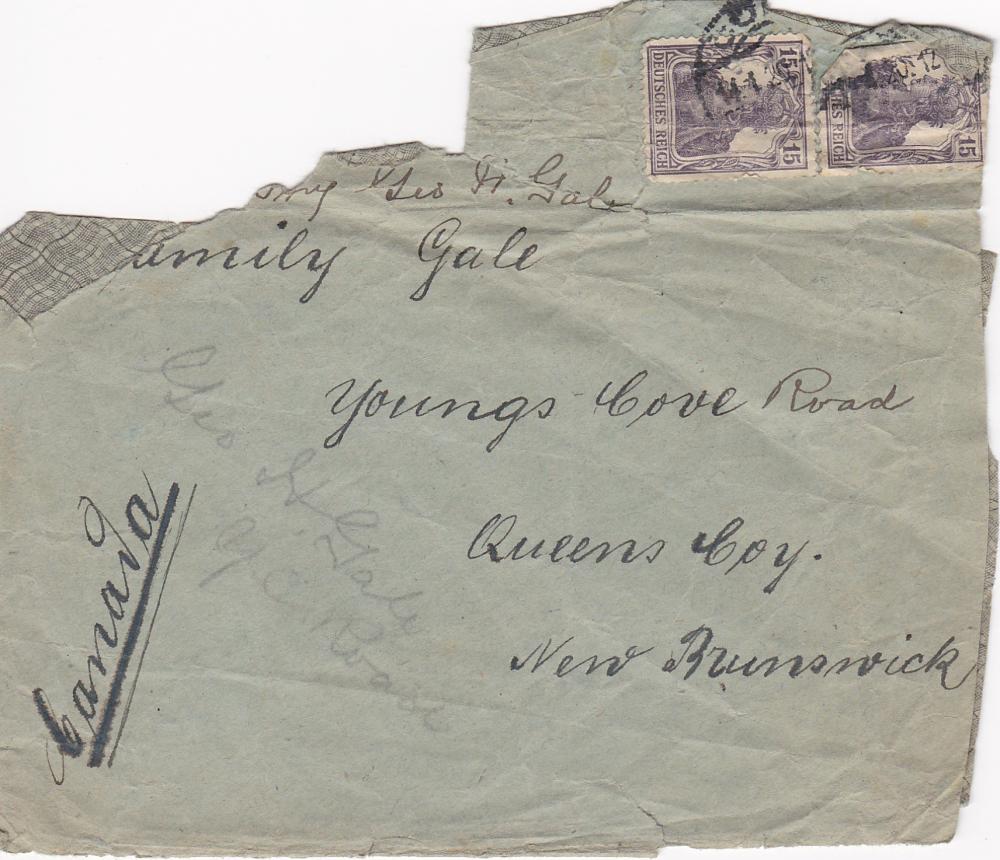 15 15
DEUTSCHES REICH
15 15
CHES REICH
12
Geo H. Gale
amily Gale
Youngs Cove Road
Queens Coy.
New Brunswick
Canada
Geo H. Gale
Y. C. Road